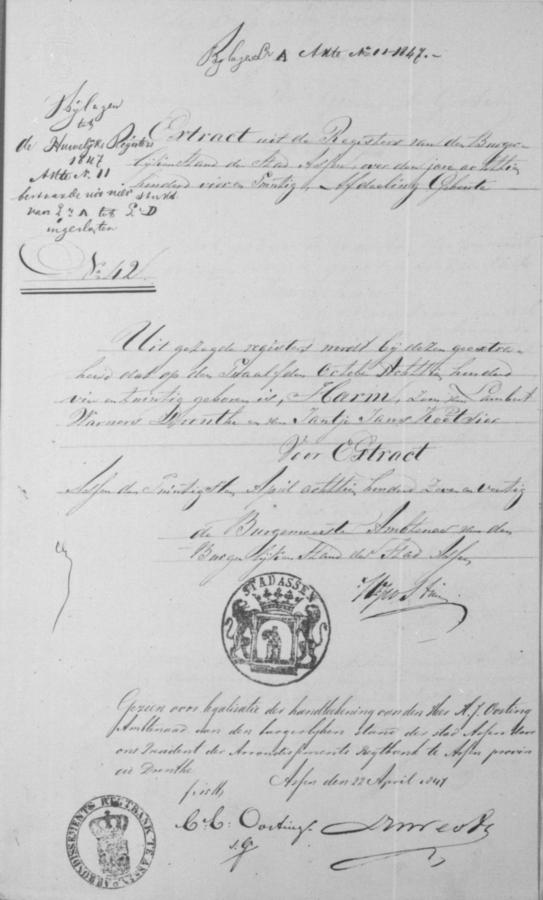 Bylagen Lr A Akte No 11-1847.-
Bylagen
tot
de Huwelijks Registers
1847
Akte N. 11
bestaande uit vier stuks
van Lr A tot Lr D
ingesloten
No 42
Extract uit de Registers van den Burger-
lijken Stand der Stad Assen, over den jare achttien
honderd vier en Twintig, Afdeeling Geboorte
Uit gezegde registers wordt bij dezen geextra-
heerd dat op den October Achttien honderd
vier en twintig geboren is, Harm, Zoon van Lambert
Warners Drenthe en van Jantje Jans
Voor Extract
Assen den Twintigsten April achttien honderd Zeven en veertig
de Burgemeester Ambtenaar van den
Burgerlijken Stand der Stad Assen
STAD ASSEN
Gezien voor legalisatie der handteekening van den Heer H. J. Oosting
Ambtenaar van den burgerlijken stand der stad Assen door
ons President der Arrondissements Regtbank te Assen provin
cie Drenthe
Assen den 22 April 1847
C. C. Oosting
ARRONDISSEMENTS REGTBANK TE ASSEN